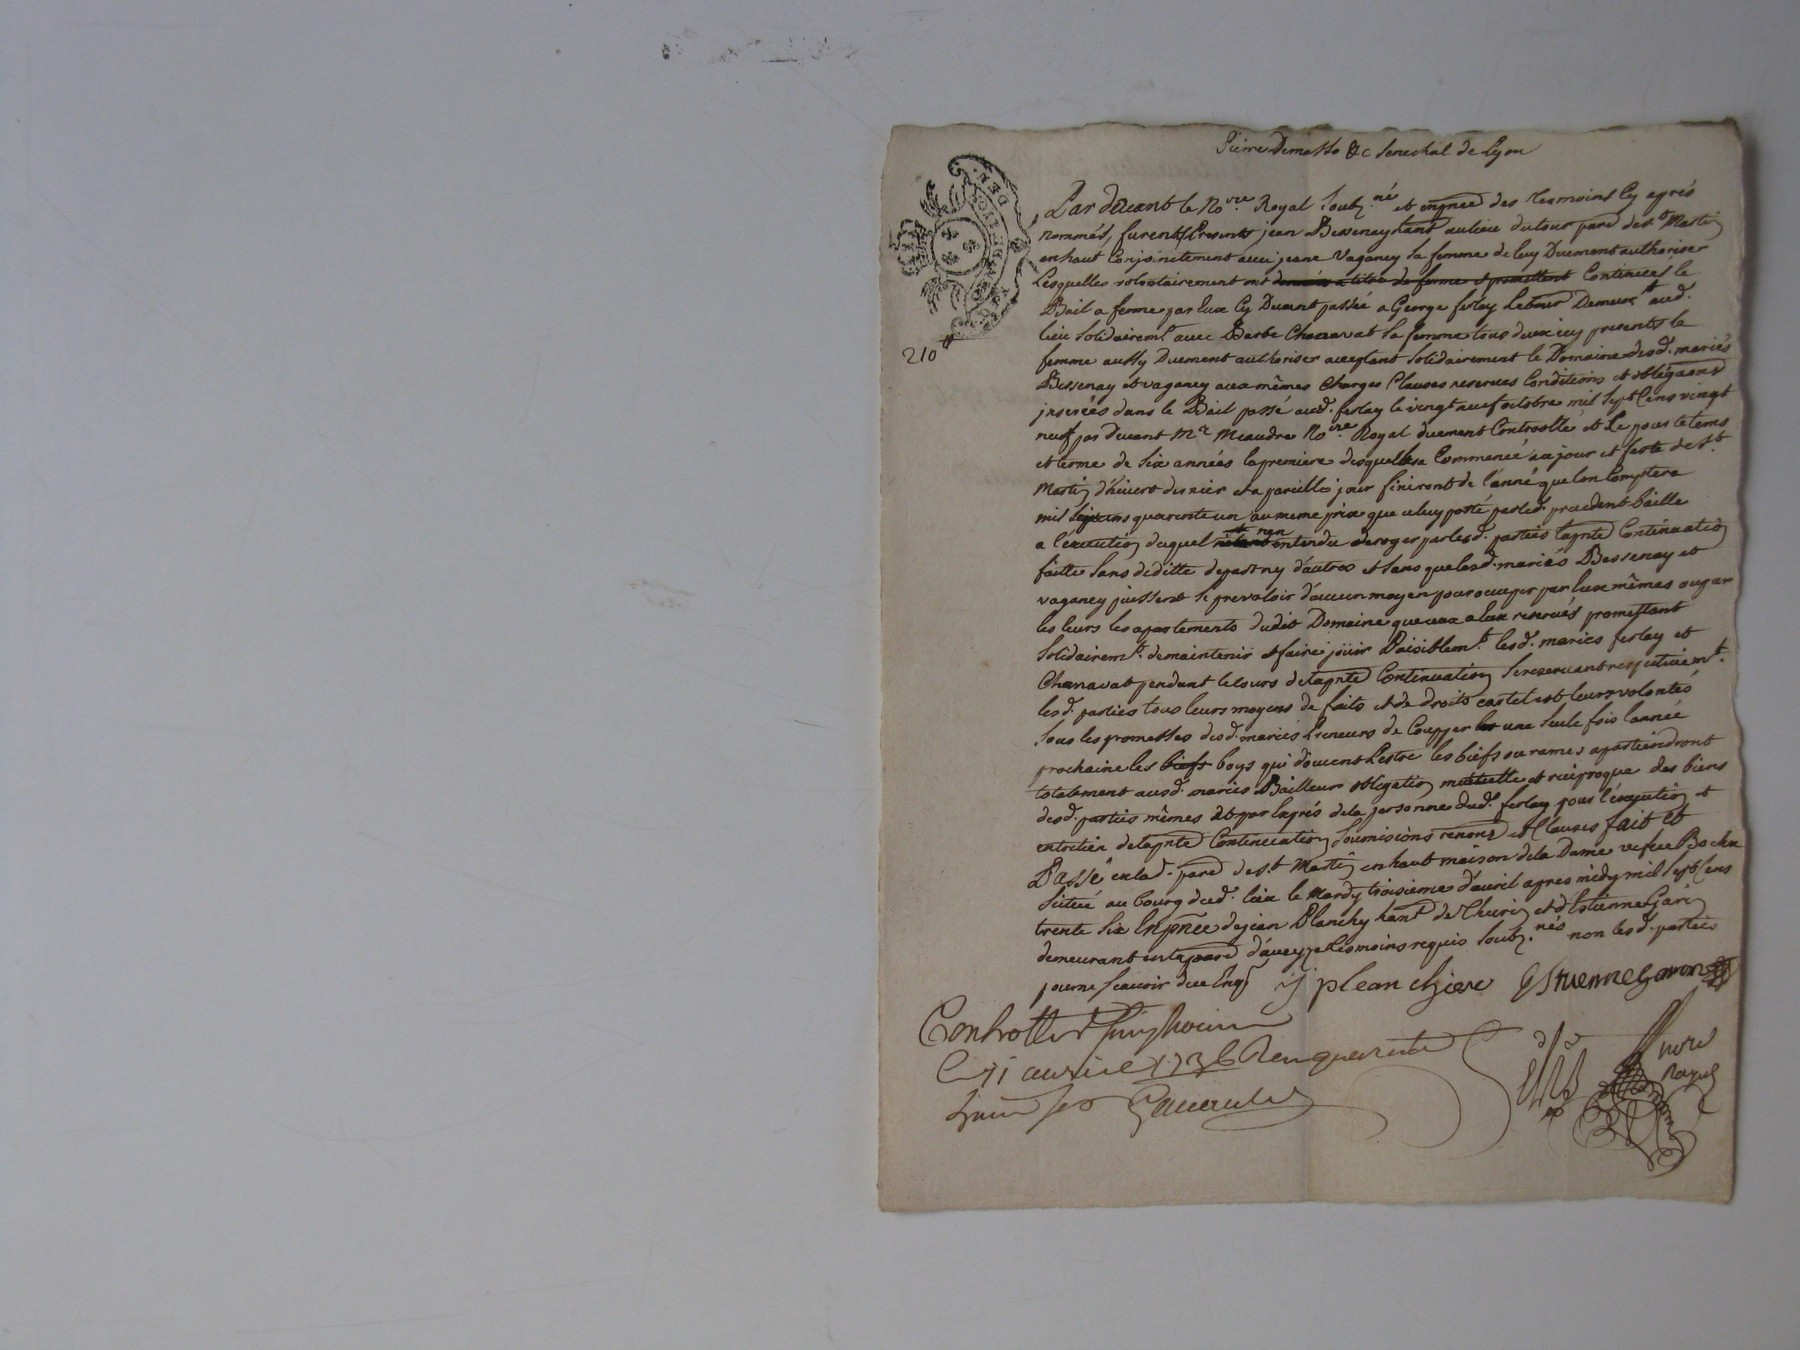 Pierre Demasso &c Senechal de Lyon
Par devant le No.re Royal soub.né et en prnce des tesmoins cy après
nommés, furent presents jean Bessenay hant au lieu du tour parsse de st Martin
en haut Conjoinctement avec jeane Vaganey sa femme de luy Duement authorisee
Lesquelles volontairement ont donnée a titre de ferme et promettent Continuer le
Bail a ferme par eux Cy Devant passée a George ferlay Labour Demeur.t aud.
lieu solidairem.t avec Barbe Chanavat sa femme tous deux icy presents la
femme aussy Duement authoriser acceptant solidairement le Domaine desd. mariés
Bessenay et vaganey aux mêmes Charges Clauses reserves Conditions et obligaons
inserées dans le Bail passé aud. ferlay le vingt neuf octobre mil sept Cens vingt
neuf par devant Mr Meaudre No.re Royal duement Controllé et Ce pour le tems
et terme de six années la premiere desquelles a Commencé au jour et feste de st.
Martin d'hivert dernier et a pareille jour finiront de l'anné que lon Comptera
mil sepcens quarente un au meme prix que celuy porté par led. precedent baille
a l'execution duquel n'étant et non entendu deroger par lesd. parties la pnte Continuation
faitte sans deditte de part ny d'autre et sans que lesd. mariés Bessenay et
vaganey puissent se prevaloir d'aucun moyen pour occuper par eux mêmes ou par
les leurs les apartements dudit Domaine que ceux a eux reservés promettant
solidairem.t de maintenir et faire joüir Paisiblem.t lesd. mariés ferlay et
Chanavat pendant le cours de la pnte Continuation se reservant respectivem.t
lesd. parties tous leurs moyens de faits et de droits car tel est leurs volontés
sous les promesses desd. mariés Preneurs de Coupper les une seule fois l'année
prochaine les bieft boys qui doivent Lestre les biefs ou rames apartiendront
totalement ausd. mariés Bailleurs obligation mutuelle et reciproque des biens
desd. parties mêmes et par Exprés de la personne dud. ferlay pour l'execution et
entretien de la pnte Continuation soumisions renonc et Clauses fait et
Passé en lad. parsse de s.t Martin en haut maison de la Dame vefve Bochu
scitué au bourg dud. lieu le mardy troisieme d'avril apres midy mil sept Cens
trente six En pnce de jean Planchy hant de Thurin et d'Estienne Garin
demeurant en la parsse d'aveyze tesmoins requis soub.nés non lesd. parties
pour ne scavoir de ce Enq
j plean chiere Estienne garon
Controllé a
Ce avril 1736 Reçu quarente
no.re
Royal
210